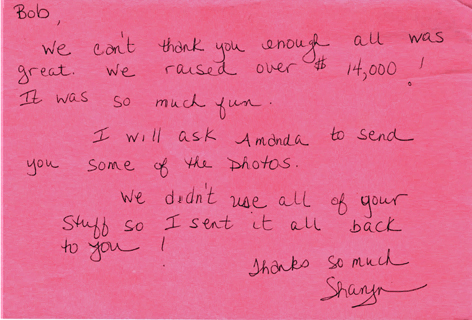 Bob,
We can't thank you enough all was
great. We raised over $ 14,000!
It was so much fun.
I will ask Amanda to send
you some of the photos.
We didn't use all of your
Stuff so I sent it all back
to you!
Thanks so much